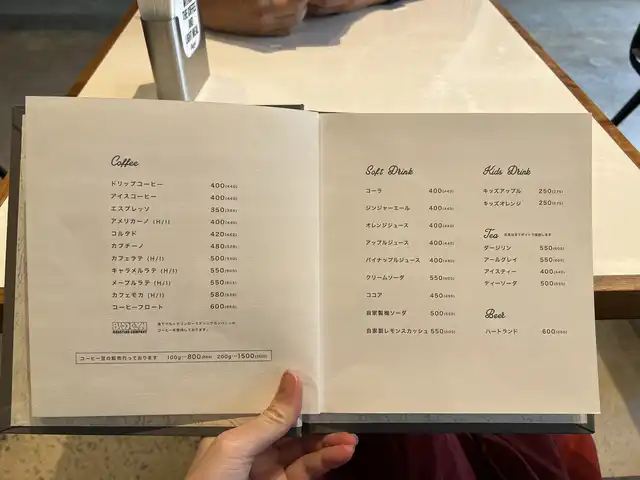 THE COFFEE
AND
LIGHT MEAL
Coffee
ドリップコーヒー 400(440)
アイスコーヒー 400(440)
エスプレッソ 350(385)
アメリカーノ (H/I) 400(440)
コルタド 420(462)
カプチーノ 480(528)
カフェラテ (H/I) 500(550)
キャラメルラテ (H/I) 550(605)
メープルラテ (H/I) 550(605)
カフェモカ (H/I) 580(638)
コーヒーフロート 600(660)
コーヒーを使用しております。
コーヒー豆の販売行っております 100g…800(864) 200g…1500(1620)
Soft Drink
コーラ 400(440)
ジンジャーエール 400(440)
オレンジジュース 400(440)
アップルジュース 400(440)
パイナップルジュース 400(440)
クリームソーダ 550(605)
ココア 450(495)
自家製梅ソーダ 500(550)
自家製レモンスカッシュ 550(605)
Kids Drink
キッズアップル 250(275)
キッズオレンジ 250(275)
Tea 紅茶は全てポットで提供します
ダージリン 550(605)
アールグレイ 550(605)
アイスティー 400(440)
ティーソーダ 500(550)
Beer
ハートランド 600(660)